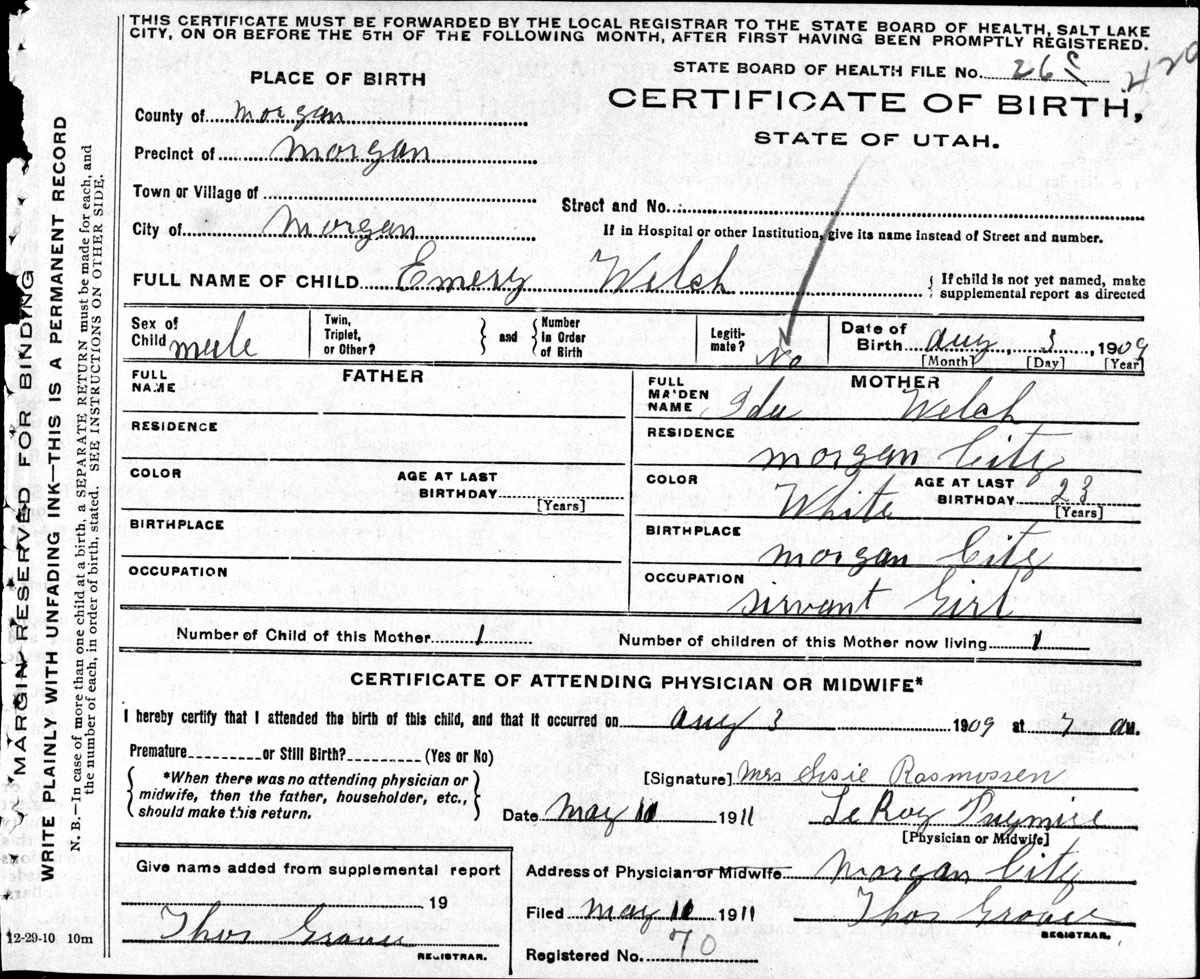 THIS CERTIFICATE MUST BE FORWARDED BY THE LOCAL REGISTRAR TO THE STATE BOARD OF HEALTH, SALT LAKE
CITY, ON OR BEFORE THE 5TH OF THE FOLLOWING MONTH, AFTER FIRST HAVING BEEN PROMPTLY REGISTERED.
PLACE OF BIRTH
STATE BOARD OF HEALTH FILE No.
CERTIFICATE OF BIRTH,
STATE OF UTAH.
County of Morgan
Precinct of Morgan
Town or Village of
Street and No.
City of Morgan
If in Hospital or other Institution, give its name instead of Street and number.
FULL NAME OF CHILD Emery Welch
If child is not yet named, make
supplemental report as directed
Sex of Child male
Twin, Triplet, or Other?
and
Number in Order of Birth
Legitimate? No
Date of Birth Aug, 3, 1909
[Month] [Day] [Year]
FATHER
FULL NAME
RESIDENCE
COLOR
AGE AT LAST BIRTHDAY
[Years]
BIRTHPLACE
OCCUPATION
MOTHER
FULL MAIDEN NAME Ida Welch
RESIDENCE
Morgan City
COLOR
White
AGE AT LAST BIRTHDAY 23
[Years]
BIRTHPLACE
Morgan City
OCCUPATION
Sirvant Girl
Number of Child of this Mother 1
Number of children of this Mother now living 1
CERTIFICATE OF ATTENDING PHYSICIAN OR MIDWIFE*
I hereby certify that I attended the birth of this child, and that it occurred on Aug 3 1909 at 7 AM.
Premature or Still Birth? (Yes or No)
*When there was no attending physician or
midwife, then the father, householder, etc.,
should make this return.
[Signature] Mrs Susie Rasmussen
Date May 11 1911 LeRoy
[Physician or Midwife]
Give name added from supplemental report
19
Thos Grover
REGISTRAR.
Address of Physician or Midwife Morgan City
Filed May 11 1911 Thos Grover
REGISTRAR.
Registered No. 70
MARGIN RESERVED FOR BINDING
WRITE PLAINLY WITH UNFADING INK—THIS IS A PERMANENT RECORD
N. B.—In case of more than one child at a birth, a SEPARATE RETURN must be made for each, and
the number of each, in order of birth, stated. SEE INSTRUCTIONS ON OTHER SIDE.
12-29-10 10m